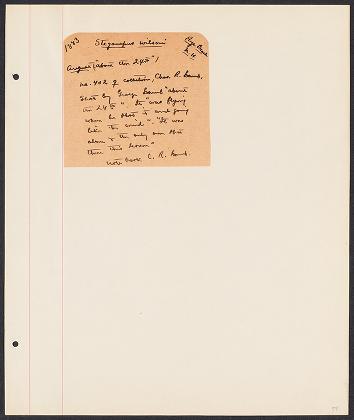 1883 Steganopus wilsoni
August (about the 24th)
no. 402 of collection, Chas. R. Lamb,
Shot by George Lamb "about
the 24th". "It was flying
when he shot it and going
with the wind". "It was
alone & the only one shot
there this season"
note book C. R. Lamb.